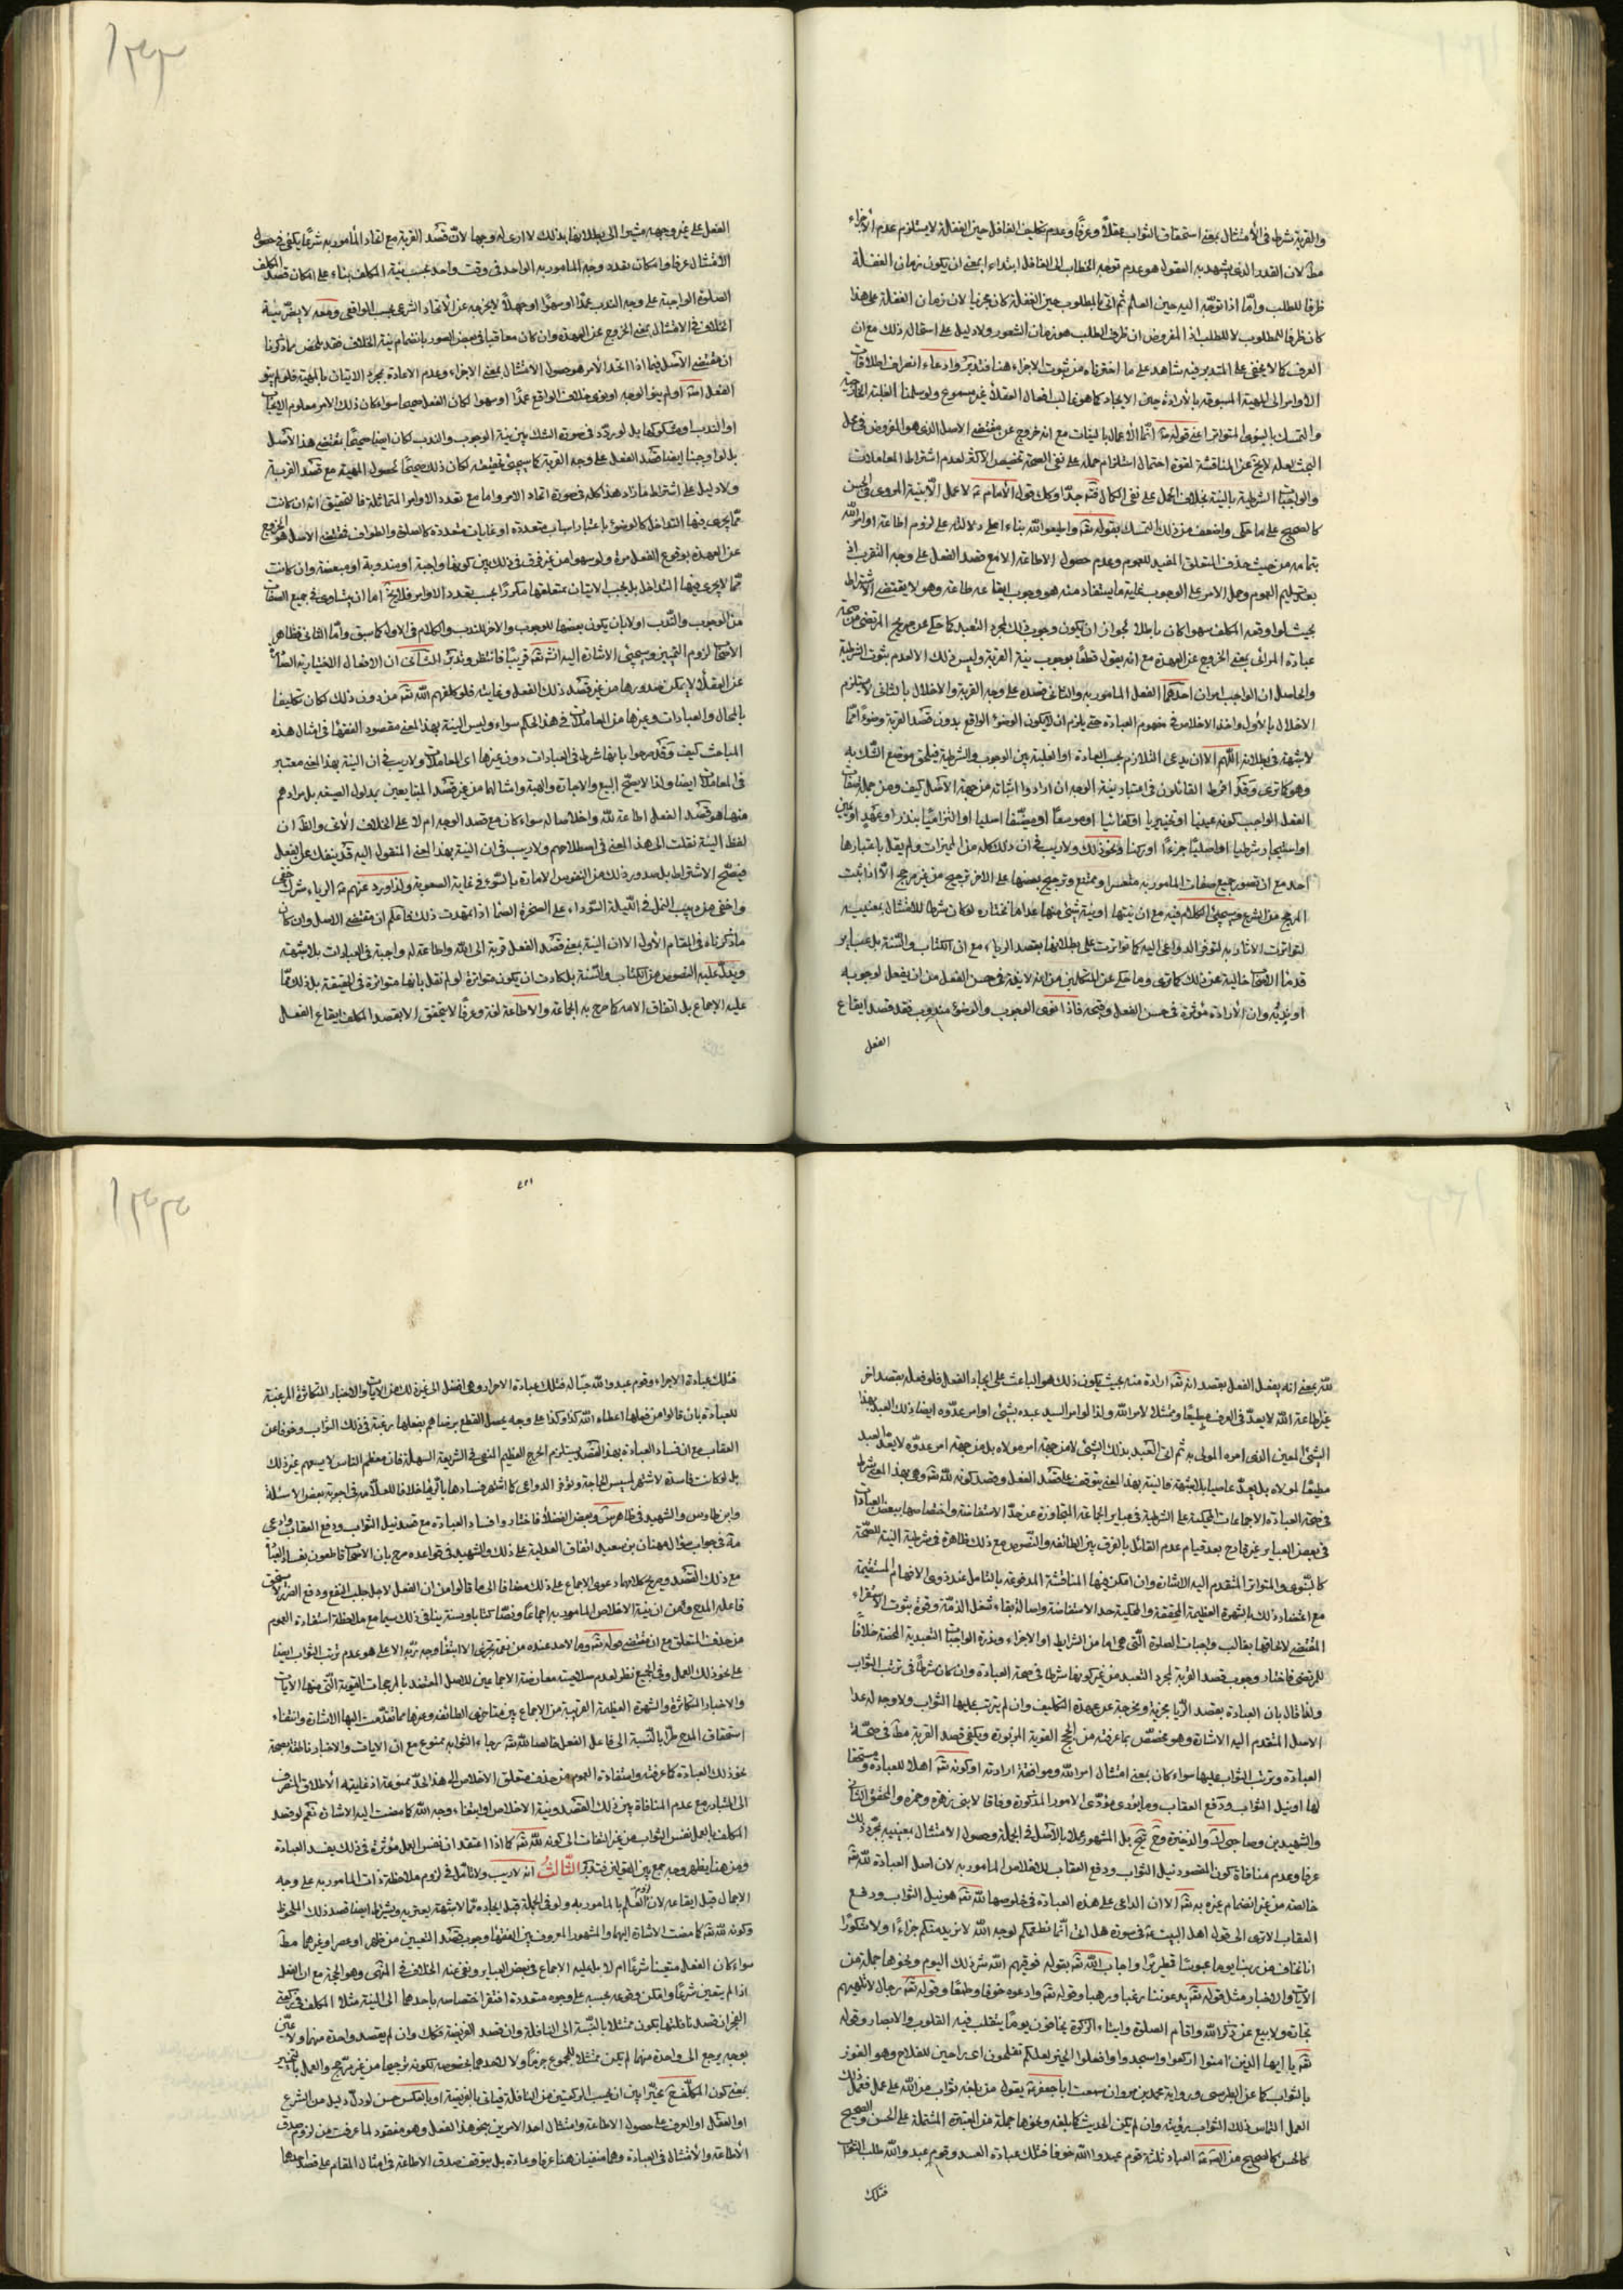 والقربة شرط في الامتثال بمعنى استحقاق الثواب عقلاً وعرفاً وعدم تكليف الغافل حين الغفلة لا يستلزم عدم الاجزاء
مط لان القدر الذي يشهد به العقول هو عدم توجه الخطاب الى الغافل ابتداء بمعنى ان يكون زمان الغفلة
ظرفا للطلب وامّا اذا توجّه اليه حين العلم ثم اتى بالمطلوب حين الغفلة كان مجزيا لان زمان الغفلة على هذا
كان ظرفا للمطلوب لا للطلب اذ المفروض ان ظرف الطلب هو زمان الشعور ولا دليل على استحالة ذلك مع ان
العرف كما لا يخفى على المتدبر فيه شاهد على ما اخترناه من ثبوت الاجزاء هنا فتدبّر وادعاء انصراف اطلاقات
الاوامر الى المهية المسبوقة بالارادة حين الايجاد كما هو غالب افعال العقلاء غير مسموع ولو سلمنا الغلبة الخارجية
والتمسك بالنبوي المتواتر اعني قوله ص انّما الاعمال بالنيات مع انه خروج عن مقتضى الاصل الذي هو المفروض في محل
البحث لعله لا يخ عن المناقشة لقوة احتمال استلزام حمله على نفي الصحة تخصيص الاكثر لعدم اشتراط المعاملات
والواجبات الشرطية بالنية بخلاف الحمل على نفي الكمال فت جدّا وكك قول الامام ع لا عمل الّا بنية المروي في الحسن
كالصحيح على ما حكى واضعف من ذلك التمسك بقوله تع واطيعوا الله بناء على دلالته على لزوم اطاعة اوامر الله
بتمامه من حيث حذف المتعلق المفيد للعموم وعدم حصول الاطاعة الا مع قصد الفعل على وجه التقرب اذ
بعد تسليم العموم وحمل الامر على الوجوب غاية ما يستفاد منه هو وجوب ايقاعه طاعة وهو لا يقتضي الاشتراط
بحيث لو اوقعه المكلف سهوا كان باطلا لجواز ان يكون وجوب ذلك لمجرد التعبد كما حكى عن صريح المرتضى من صحة
عبادة المرائي بمعنى الخروج عن العهدة مع انه يقول قطعا بوجوب نية القربة وليس ذلك الا لعدم ثبوت الشرطية
والحاصل ان الواجب امران احدهما الفعل المامور به والثاني قصده على وجه القربة والاخلال بالثاني لا يستلزم
الاخلال بالاول واخذ الاخلاص في مفهوم العبادة حتى يلزم ان لا يكون الوضوء الواقع بدون قصد القربة وضوءً امّا
لا شبهة في بطلانه اللّهم الا ان يدعى التلازم بحسب العادة او الغلبة بين الوجوب والشرطية فيلحق موضع الشك به
وهو كما ترى وقد افرط القائلون في اعتبار نية الوجه ان ارادوا اثباته من جهة الاصل كيف ومن جملة صفات
الفعل الواجب كونه عينيا او تخييريا او كفائيا او موسعا او مضيّقا اصليا او التزاميا بنذر او عهد او يمين
او استيجار شرطيا او اصليا جزءًا او ركنا ونحو ذلك ولا ريب في ان ذلك كله من المميزات ولم يقل باعتبارها
احد مع ان تصور جميع صفات المامور به متعسر او ممتنع وترجيح بعضها على الاخر ترجيح من غير مرجح الّا اذا ثبت
المرجح من الشرع وسيجئ الكلام فيه مع ان نيتها او نية شئ منها عدا ما نختاره لو كان شرطا للامتثال بمعنييه
لتواترت الاثار به لتوفر الدواعي اليه كما تواترت على بطلانها بقصد الرياء مع ان الكتاب والسّنة بل عباير
قدماء الاصحاب خالية عن ذلك كما ترى وما حكى عن المتكلمين من انه لا بد في حسن الفعل من ان يفعل لوجوبه
او ندبه وان الارادة مؤثرة في حسن الفعل وقبحه فاذا نوى الوجوب والوضوء مندوب فقد قصد ايقاع
الفعل
الفعل على غير وجهه مشيرا الى بطلانها بذلك لا ارى له وجها لانّ قصد القربة مع اتحاد المأمور به شرعًا يكفي في حصول
الامتثال عرفا وامكان تعدد وجه المامور به الواحد في وقت واحد بحسب نية المكلف بناء على امكان قصد المكلف
الصلوة الواجبة على وجه الندب عمدًا او سهوًا او جهلاً لا يخرجه عن الاتحاد الشرعي بحسب الواقعي ومعه لا يضر نية
الخلاف في الامتثال بمعنى الخروج عن العهدة وان كان معاقبا في بعض الصور بانضمام نية الخلاف فقد تلخص مما ذكرنا
ان مقتضى الاصل فيما اذا اتحد الامر هو حصول الامتثال بمعنى الاجزاء وعدم الاعادة بمجرد الاتيان بالمهية فلو لم ينو
الفعل اصلا او لم ينو الوجه او نوى خلاف الواقع عمدًا او سهوا لكان الفعل صحيحا سواء كان ذلك الامر معلوم الايجاب
او الندب او مشكوكها بل لو ردّد في صورة الشك بين نية الوجوب والندب لكان ايضا صحيحًا بمقتضى هذا الاصل
بل لو اوجبنا ايضا قصد الفعل على وجه القربة كما سيجئ تحقيقه لكان ذلك صحيحًا لحصول المهية مع قصد القربة
ولا دليل على اشتراط ما زاد هذا كله في صورة اتحاد الامر واما مع تعدد الاوامر المتماثلة فالتحقيق انه ان كانت
ممّا يجري فيها التداخل كالوضوء باعتبار اسباب متعددة او غايات متعددة كالصلوة والطواف فمقتضى الاصل هو الخروج
عن العهدة بوقوع الفعل مرة ولو سهوا من غير فرق في ذلك بين كونها واجبة او مندوبة او مبعضة وان كانت
ممّا لا يجري فيها التداخل بل يجب الاتيان بمتعلقها مكررًا بحسب تعدد الاوامر فلا يخ امّا ان يتساوى في جميع الصفات
من الوجوب والنّدب او لا بان يكون بعضها للوجوب والاخر للندب والكلام في الاول كما سبق وامّا الثاني فظاهر
الاصحاب لزوم التمييز وسيجئ الاشارة اليه انش تع قريبًا فانتظر وتدبّر الثّاني ان الافعال الاختيارية الصادرة
عن العقلاء لا يمكن صدورها من غير قصد ذلك الفعل وغايته فلو كلفهم الله تع من دون ذلك لكان تكليفا
بالمحال والعبادات وغيرها من المعاملات في هذا الحكم سواء وليس النية بهذا المعنى مقصود الفقهاء في امثال هذه
المباحث كيف وقد صرحوا بانها شرط في العبادات دون غيرها اي المعاملات ولا ريب في ان النية بهذا المعنى معتبر
في المعاملات ايضا ولذا لا يصح البيع والاجارة والهبة وامثالها من غير قصد المتبايعين بمدلول الصيغة بل مرادهم
منها هو قصد الفعل اطاعة لله واخلاصا له سواء كان مع قصد الوجه ام لا على الخلاف الاتي والظ ان
لفظ النية نقلت الى هذا المعنى في اصطلاحهم ولا ريب في ان النية بهذا المعنى المنقول اليه قد ينفك عن الفعل
فيصحّ الاشتراط بل صدور ذلك من النفوس الامارة بالسّوء في غاية الصعوبة ولذا ورد عنهم ع الرياء شرك خفي
واخفى من دبيب النمل في اللّيلة السّوداء على الصخرة الصمّا اذا تمهدت ذلك فاعلم ان مقتضى الاصل وان كان
ما ذكرناه في المقام الاول الا ان النية بمعنى قصد الفعل قربة الى الله واطاعة له واجبة في العبادات بلا شبهة
ويدلّ عليه النصوص من الكتاب والسّنة بل كادت ان يكون متواترة لو لم نقل بانها متواترة في الحقيقة بل ذلك ممّا
عليه الاجماع بل اتفاق الامه كما صرح به الجماعة والاطاعة لغة وعرفًا لا يتحقق الا بقصد المكلف ايقاع الفعل
لله بمعنى انه يفعل الفعل بقصد انه تع اراده منه بحيث يكون ذلك هو الباعث على ايجاد الفعل فلو فعله بقصد اخر
غير اطاعة الله لا يعدّ في العرف مطيعًا وممتثلا لامر الله ولذا لو امر السيد عبده بشئ او امر عدوّه ايضا ذلك العبد بهذا
الشئ المعين الذي امره المولى به ثم اتى العبد بذلك الشئ لا من جهة امر مولاه بل من جهة امر عدوّه لا يعدّ العبد
مطيعًا لمولاه بل يعدّ عاصيا بلا شبهة فالنية بهذا المعنى يتوقف على قصد الفعل وقصد كونه لله تع وهي بهذا المعنى شرط
في صحة العبادة الاجماعات المحكية على الشرطية في عباير الجماعة المتجاوزة عن حدّ الاستفاضة واختصاصها ببعض العبادات
في بعض العباير غير قادح بعد قيام عدم القائل بالفرق بين الطائفة والنّصوص مع ذلك ظاهرة في شرطية النية للصحة
كالنبوي والمتواتر المتقدم اليه الاشارة وان امكن فيها المناقشة المدفوعة بالتامل عند ذوي الافهام المستقيمة
مع اعتضاد ذلك بالشهرة العظيمة المحققة والمحكية حد الاستفاضة واصالة بقاء شغل الذمّة وقوة ثبوت الاستقراء
المقتضى لالحاقها بغالب واجبات الصلوة الّتي هي اما من الشرايط او الاجزاء وندرة الواجبات التعبدية المحضة خلافًا
للمرتضى فاختار وجوب قصد القربة لمجرد التعبد من غير كونها شرطا في صحة العبادة وان كان شرطًا في ترتب الثواب
ولذا قال بان العبادة بقصد الرّيا مجزية ومخرجة عن عهدة التكليف وان لم يترتب عليها الثواب ولا وجه له عدا
الاصل المتقدم اليه الاشارة وهو مخصّص بما عرفته من الحجج القوية المزبورة ويكفي قصد القربة مط في صحّة
العبادة وترتب الثواب عليها سواء كان بمعنى امتثال امر الله وموافقة ارادته او كونه تع اهلا للعبادة ومستحقا
لها او نيل الثواب ودفع العقاب وما يؤدي مؤدّى الامور المذكورة وفاقا لابني زهرة وحمزة والمحقق الثاني
والشهيدين وصاحبي ك والذخيرة و ح بل المشهور عملا بالاصل في الجملة وحصول الامتثال بمعنييه بمجرد ذلك
عرفا وعدم منافاة كون المقصود نيل الثواب ودفع العقاب للاخلاص المامور به لان اصل العبادة لله تع
خالصة من غير انضمام غيره به تع الا ان الداعي على هذه العبادة في خلوصها لله تع هو نيل الثواب ودفع
العقاب الا ترى الى قول اهل البيت ع في سورة هل اتى انّما نطعمكم لوجه الله لا نريد منكم جزاءًا ولا شكورًا
انا نخاف من ربنا يوما عبوسًا قمطريرًا واجاب الله تع بقوله فوقيهم الله شر ذلك اليوم ونحوها جملة من
الايات والاخبار مثل قوله تع يدعوننا رغبا ورهبا وقوله تع وادعوه خوفا وطمعًا وقوله تع رجال لا تلهيهم
تجارة ولا بيع عن ذكر الله واقام الصلوة وايتاء الزكوة يخافون يومًا يتقلب فيه القلوب والابصار وقوله
تع يا ايها الذين امنوا اركعوا واسجدوا وافعلوا الخير لعلكم تفلحون اى راجين للفلاح وهو الفوز
بالثواب كما عن الطبرسي ورواية محمد بن مروان سمعت ابا جعفر ع يقول من بلغه ثواب من الله على عمل فعمل ذلك
العمل التماس ذلك الثواب اوتيه وان لم يكن الحديث كما بلغه ونحوها جملة من المعتبرة المشتملة على الحسن والصحيح
كالحسن كالصحيح عن الص ع العباد ثلثة قوم عبدوا الله خوفا فتلك عبادة العبيد وقوم عبدوا الله طلب الثواب
فتلك
فتلك عبادة الاجراء وقوم عبدوا الله حبّا له فتلك عبادة الاحرار وهي افضل الى غير ذلك من الايات والاخبار المتكاثرة المرغبة
للعبادة بان قالوا من فعلها اعطاه الله كذا وكذا على وجه يحصل القطع برضاهم بفعلها رغبة في ذلك الثواب وخوفا عن
العقاب مع ان فساد العبادة بهذا القصد يستلزم الحرج العظيم المنفي في الشريعة السهلة فان معظم الناس لا يسعهم غير ذلك
بل لو كانت فاسدة لاشتهر لمسيس الحاجة وتوفر الدواعي كما اشتهر فسادها بالرّيا خلافا للعلّامة في اجوبة بعض الاسئلة
وابن طاوس والشهيد في ظاهر س وبعض الفضلاء فاختاروا فساد العبادة مع قصد نيل الثواب ودفع العقاب وادعى
مة في جواب سؤال مهنا بن سعيد اتفاق العدلية على ذلك والشهيد في قواعده صرح بان الاصحاب قاطعون بفساد العبادة
مع ذلك القصد وصريح كلامهما دعوى الاجماع على ذلك مضافا الى ما قالوا من ان الفعل لاجل جلب النفع ودفع الضرر لا يستحق
فاعله المدح ومن ان نية الاخلاص المامور به اجماعًا ونصًا كتابا وسنة ينافي ذلك سيما مع ملاحظة استفادة العموم
من حذف المتعلق مع ان مقتضى قوله تع وما لاحد عنده من نعمة تجزى الا ابتغاء وجه ربّه الاعلى هو عدم ترتب الثواب ايضا
على نحو ذلك العمل وفي الجميع نظر لعدم صلاحيته معارضة الاجماعين للاصل المعتضد بالمرجحات القوية الّتي منها الايات
والاخبار المتكاثرة والشهرة العظيمة القريبة من الاجماع بين متاخري الطائفة وغيرها مما تقدّمت اليها الاشارة وانتفاء
استحقاق المدح طرًّا بالنّسبة الى فاعل الفعل خالصا لله تع رجاء الثوابه ممنوع مع ان الايات والاخبار ناطقة بصحة
نحو ذلك العبادة كما عرفته واستفادة العموم من حذف متعلق الاخلاص الى هذا الحدّ ممنوعة اذ غايته الاطلاق المنصرف
الى المتبادر مع عدم المنافاة بين ذلك القصد ونية الاخلاص وابتغاء وجه الله كما مضت اليه الاشارة نعم لو قصد
المكلف بالعمل نفس الثواب من غير التفات الى كونه لله تع كما اذا اعتقد ان نفس العمل مؤثرة في ذلك يفسد العبادة
ومن هنا يظهر وجه جمع بين القولين فتدبّر الثّالث انه لا ريب ولا تامل في لزوم ملاحظة ذات المامور به على وجه
الاجمال قبل ايقاعه لانّ لزوم العلم بالمامور به ولو في الجملة قبل ايجاده ممّا لا شبهة يعتريه ويشترط ايضا قصد ذلك الملحوظ
وكونه لله تع كما مضت الاشارة اليها والمشهور المعروف بين الفقهاء وجوب قصد التعيين من ظهر او عصر او غيرهما مط
سواء كان الفعل متعينا شرعًا ام لا بل عليه الاجماع في بعض العباير ونفى عنه الخلاف في المنتهى وهو الحجة مع ان الفعل
اذا لم يتعين شرعًا وامكن وقوعه بحسبه على وجوه متعددة افتقر اختصاصه باحدهما الى النية مثلا المكلف في ركعتي
الفجر ان قصد نافلتها يكون ممتثلا بالنّسبة الى النافلة وان قصد الفريضة فكك وان لم يقصد واحدة منهما ولا عين
بوجه يرجع الى واحدة منهما لم يكن ممتثلا للمجموع جزمًا ولا لاحدهما بخصوصه لكونه ترجيحا من غير مرجح والعمل بالتخيير
بمعنى كون المكلّف مخيّرا بين ان يحسب الركعتين من النافلة فياتي بالفريضة او بالعكس حسن لو دلّ دليل من الشرع
او العقل او العرف على حصول الاطاعة وامتثال احد الامرين بنحو هذا الفعل وهو مفقود لما عرفت من لزوم صدق
الاطاعة والامتثال في العبادة وهما منفيان هنا عرفا وعادة بل يتوقف صدق الاطاعة في امثال المقام على قصد احدهما